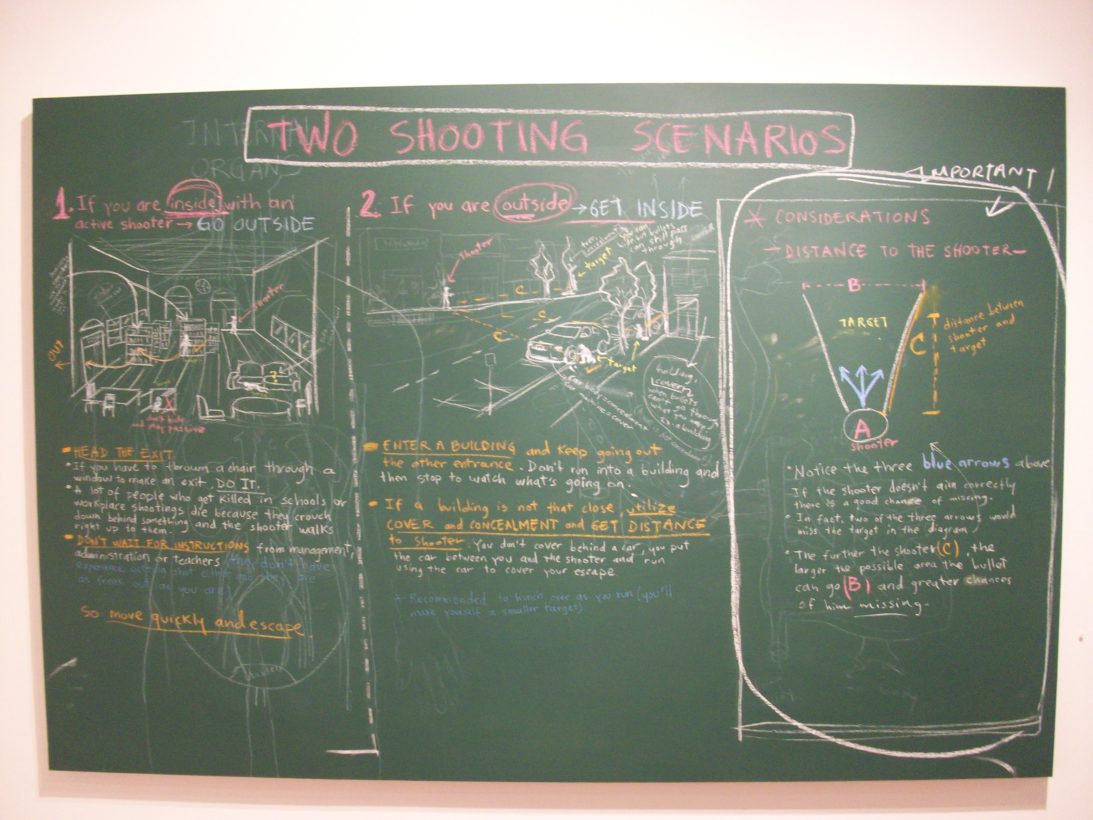 INTERNAL
ORGANS
TWO SHOOTING SCENARIOS
IMPORTANT!
1. If you are inside with an
active shooter → GO OUTSIDE
shooter
OUT
2. If you are outside → GET INSIDE
shooter
target
may still pass
through
C
C
target
building:
COVER
* CONSIDERATIONS
→ DISTANCE TO THE SHOOTER—
B
TARGET
C
distance between
shooter and
target
A
shooter
• HEAD THE EXIT
• If you have to thrown a chair through a
window to make an exit, DO IT.
• A lot of people who get killed in schools or
workplace shootings die because they crouch
down behind something and the shooter walks
right up to them.
• DON'T WAIT FOR INSTRUCTIONS from management,
administration or teachers (they don't have
as freak out as you are)
So move quickly and escape.
• ENTER A BUILDING and keep going out
the other entrance. Don't run into a building and
then stop to watch what's going on.
• If a building is not that close, utilize
COVER and CONCEALMENT and GET DISTANCE
to shooter. You don't cover behind a car, you put
the car between you and the shooter and run
using the car to cover your escape.
* Recommended to hunch over as you run (you'll
make yourself a smaller target)
• Notice the three blue arrows above
If the shooter doesn't aim correctly
there is a good chance of missing.
• In fact, two of the three arrows would
miss the target in the diagram
• The further the shooter (C), the
larger the possible area the bullet
can go (B) and greater chances
of him missing.